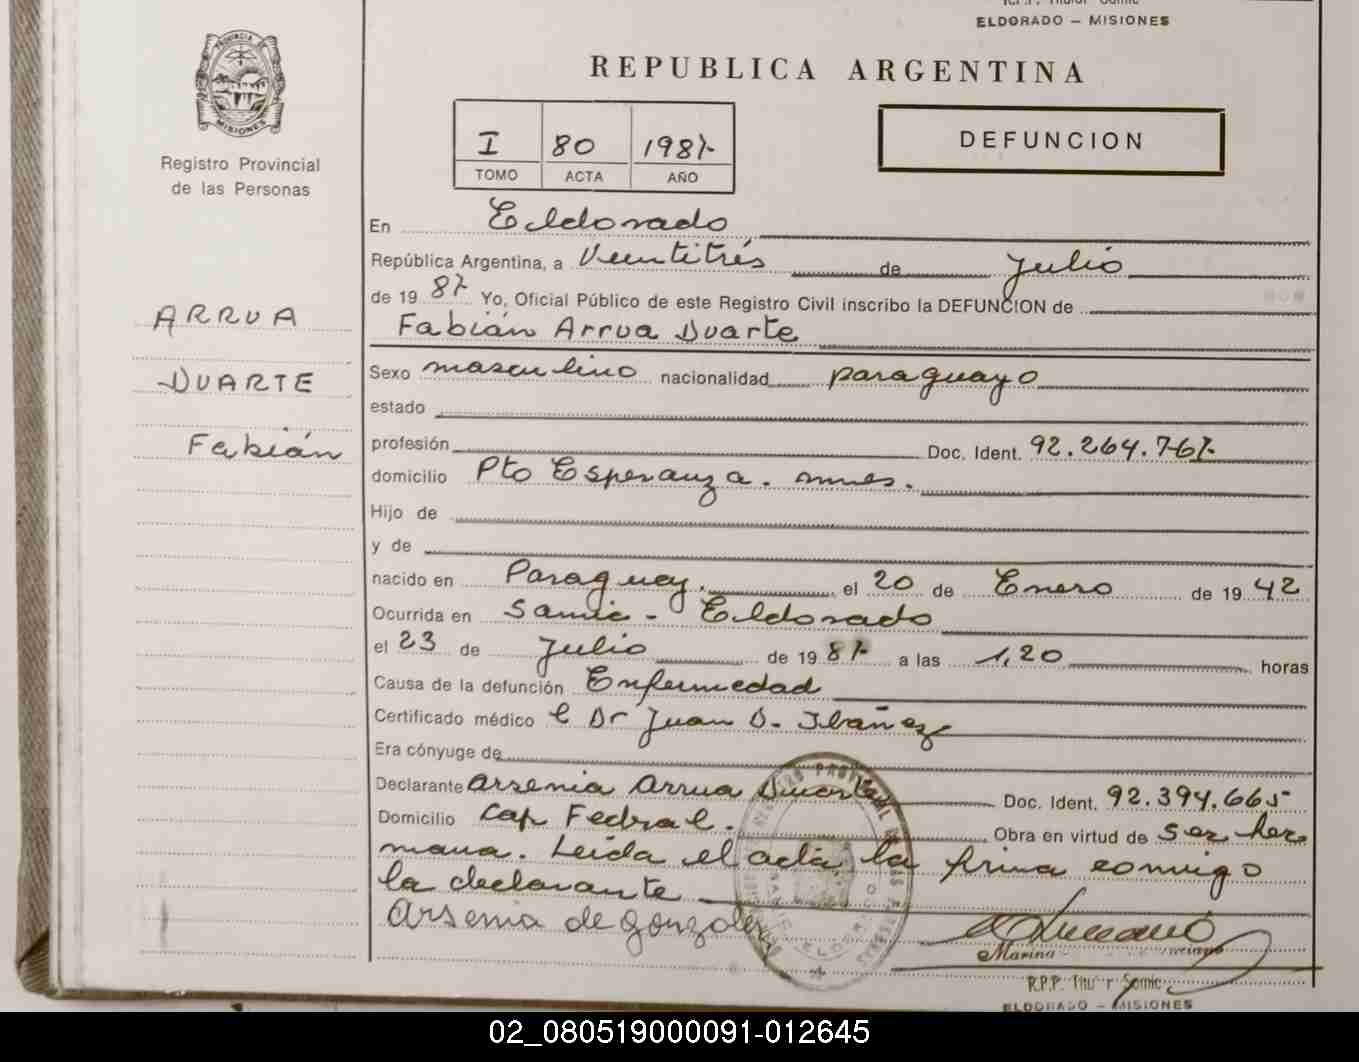 R.P.P. Titular Samic
ELDORADO – MISIONES
PROVINCIA DE MISIONES
Registro Provincial
de las Personas
REPUBLICA ARGENTINA
I 80 1987
TOMO ACTA AÑO
DEFUNCION
En Eldorado
República Argentina, a Veintitrés de Julio
de 19 87 Yo, Oficial Público de este Registro Civil inscribo la DEFUNCION de
Fabián Arrua Duarte
ARRUA
DUARTE
Fabián
Sexo masculino nacionalidad paraguayo
estado
profesión Doc. Ident. 92.264.767
domicilio Pto Esperanza. mnes.
Hijo de
y de
nacido en Paraguay. el 20 de Enero de 19 42
Ocurrida en Samic - Eldorado
el 23 de Julio de 19 87 a las 1,20 horas
Causa de la defunción Enfermedad
Certificado médico Dr Juan D. Ibáñez
Era cónyuge de
Declarante Arsenia Arrua Duarte Doc. Ident. 92.394.665
Domicilio Cap Federal. Obra en virtud de Ser her
mana. Leida el acta, la firma conmigo
la declarante
Arsenia de gonzalez
Marina
R.P.P. Titu r Samic
ELDORADO – MISIONES
02_080519000091-012645